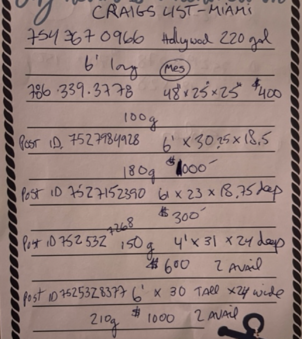 CRAIGS LIST - MIAMI
754 367 0966 Hollywood 220 gal
6' long Mes
786.339.3778 48"x25"x25" $400
100g
Post ID. 7527984928 6' x 30.25 x 18,5
180g $1000-
Post ID 7527152390 6' x 23 x 18,75 deep
$300-
7268
Post ID 752532 150g 4' x 31 x 24 deep
$600 2 Avail
Post ID 7525328377 6' x 30 TALL x 24 wide
210g $1000 2 avail